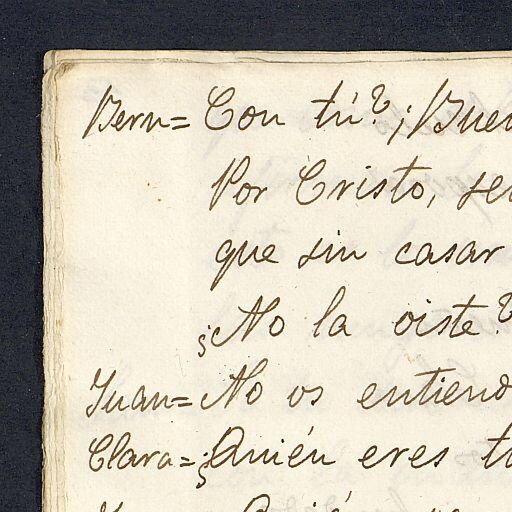 Bern= Con tú? ¡Buen
Por Cristo, se
que sin casar
¿No la oiste?
Juan= No os entiend
Clara= ¿Quién eres tú